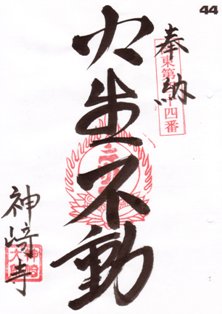 44
奉納
東第 四番
火生不動
神﨑寺